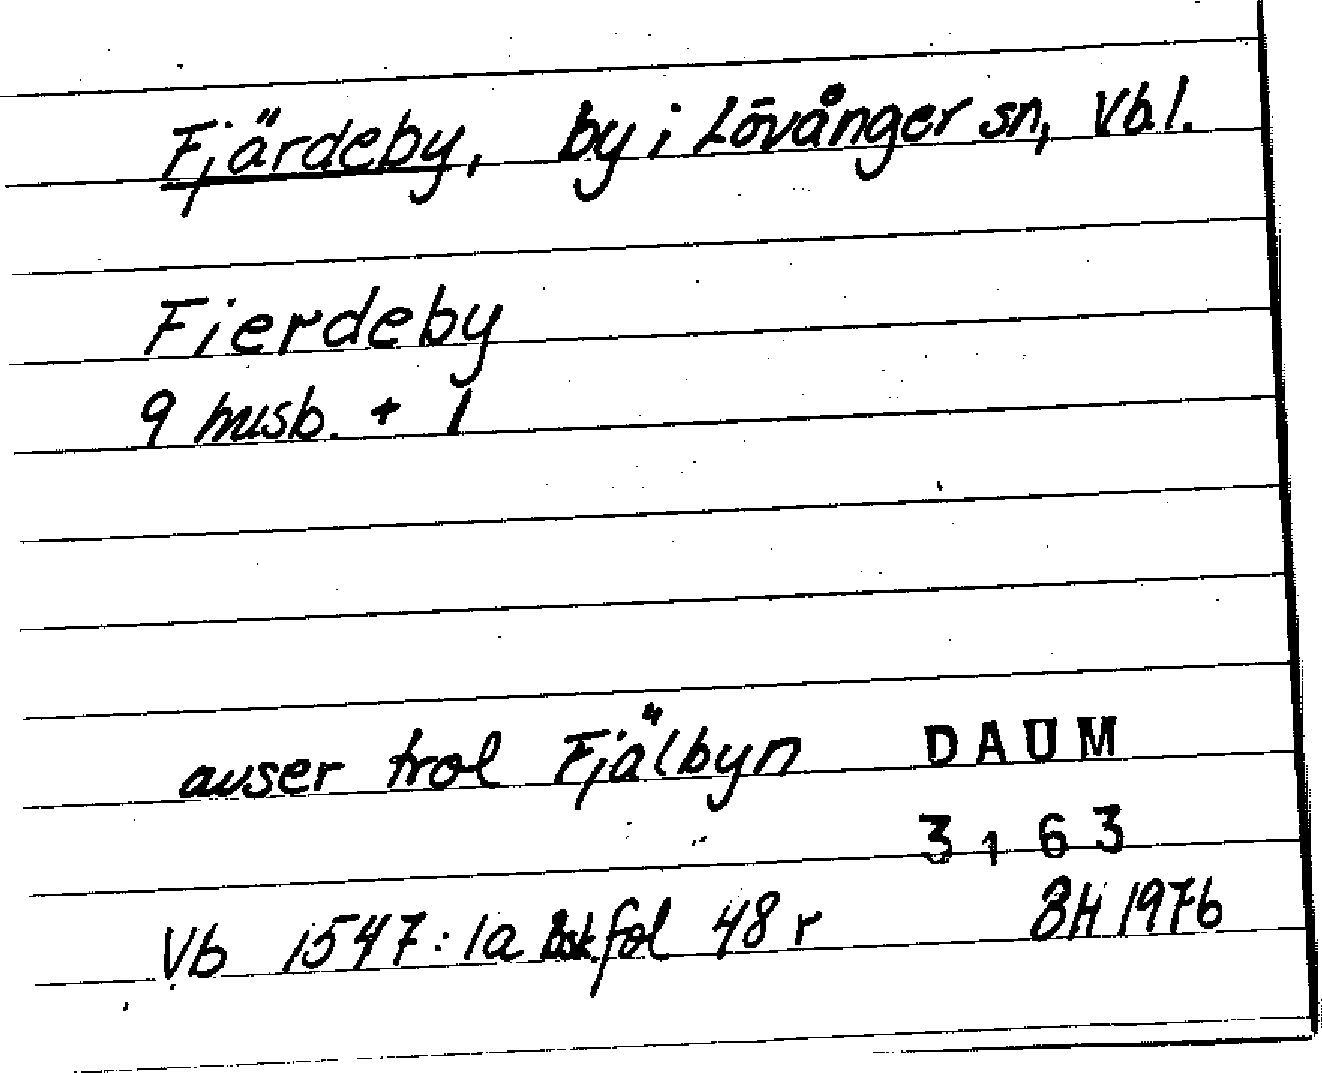 Fjärdeby, by i Lövånger sn, Vbl.
Fierdeby
9 husb. + 1
avser trol Fjälbyn
DAUM
3163
Vb 1547:1a bsk fol 48 r
BH 1976